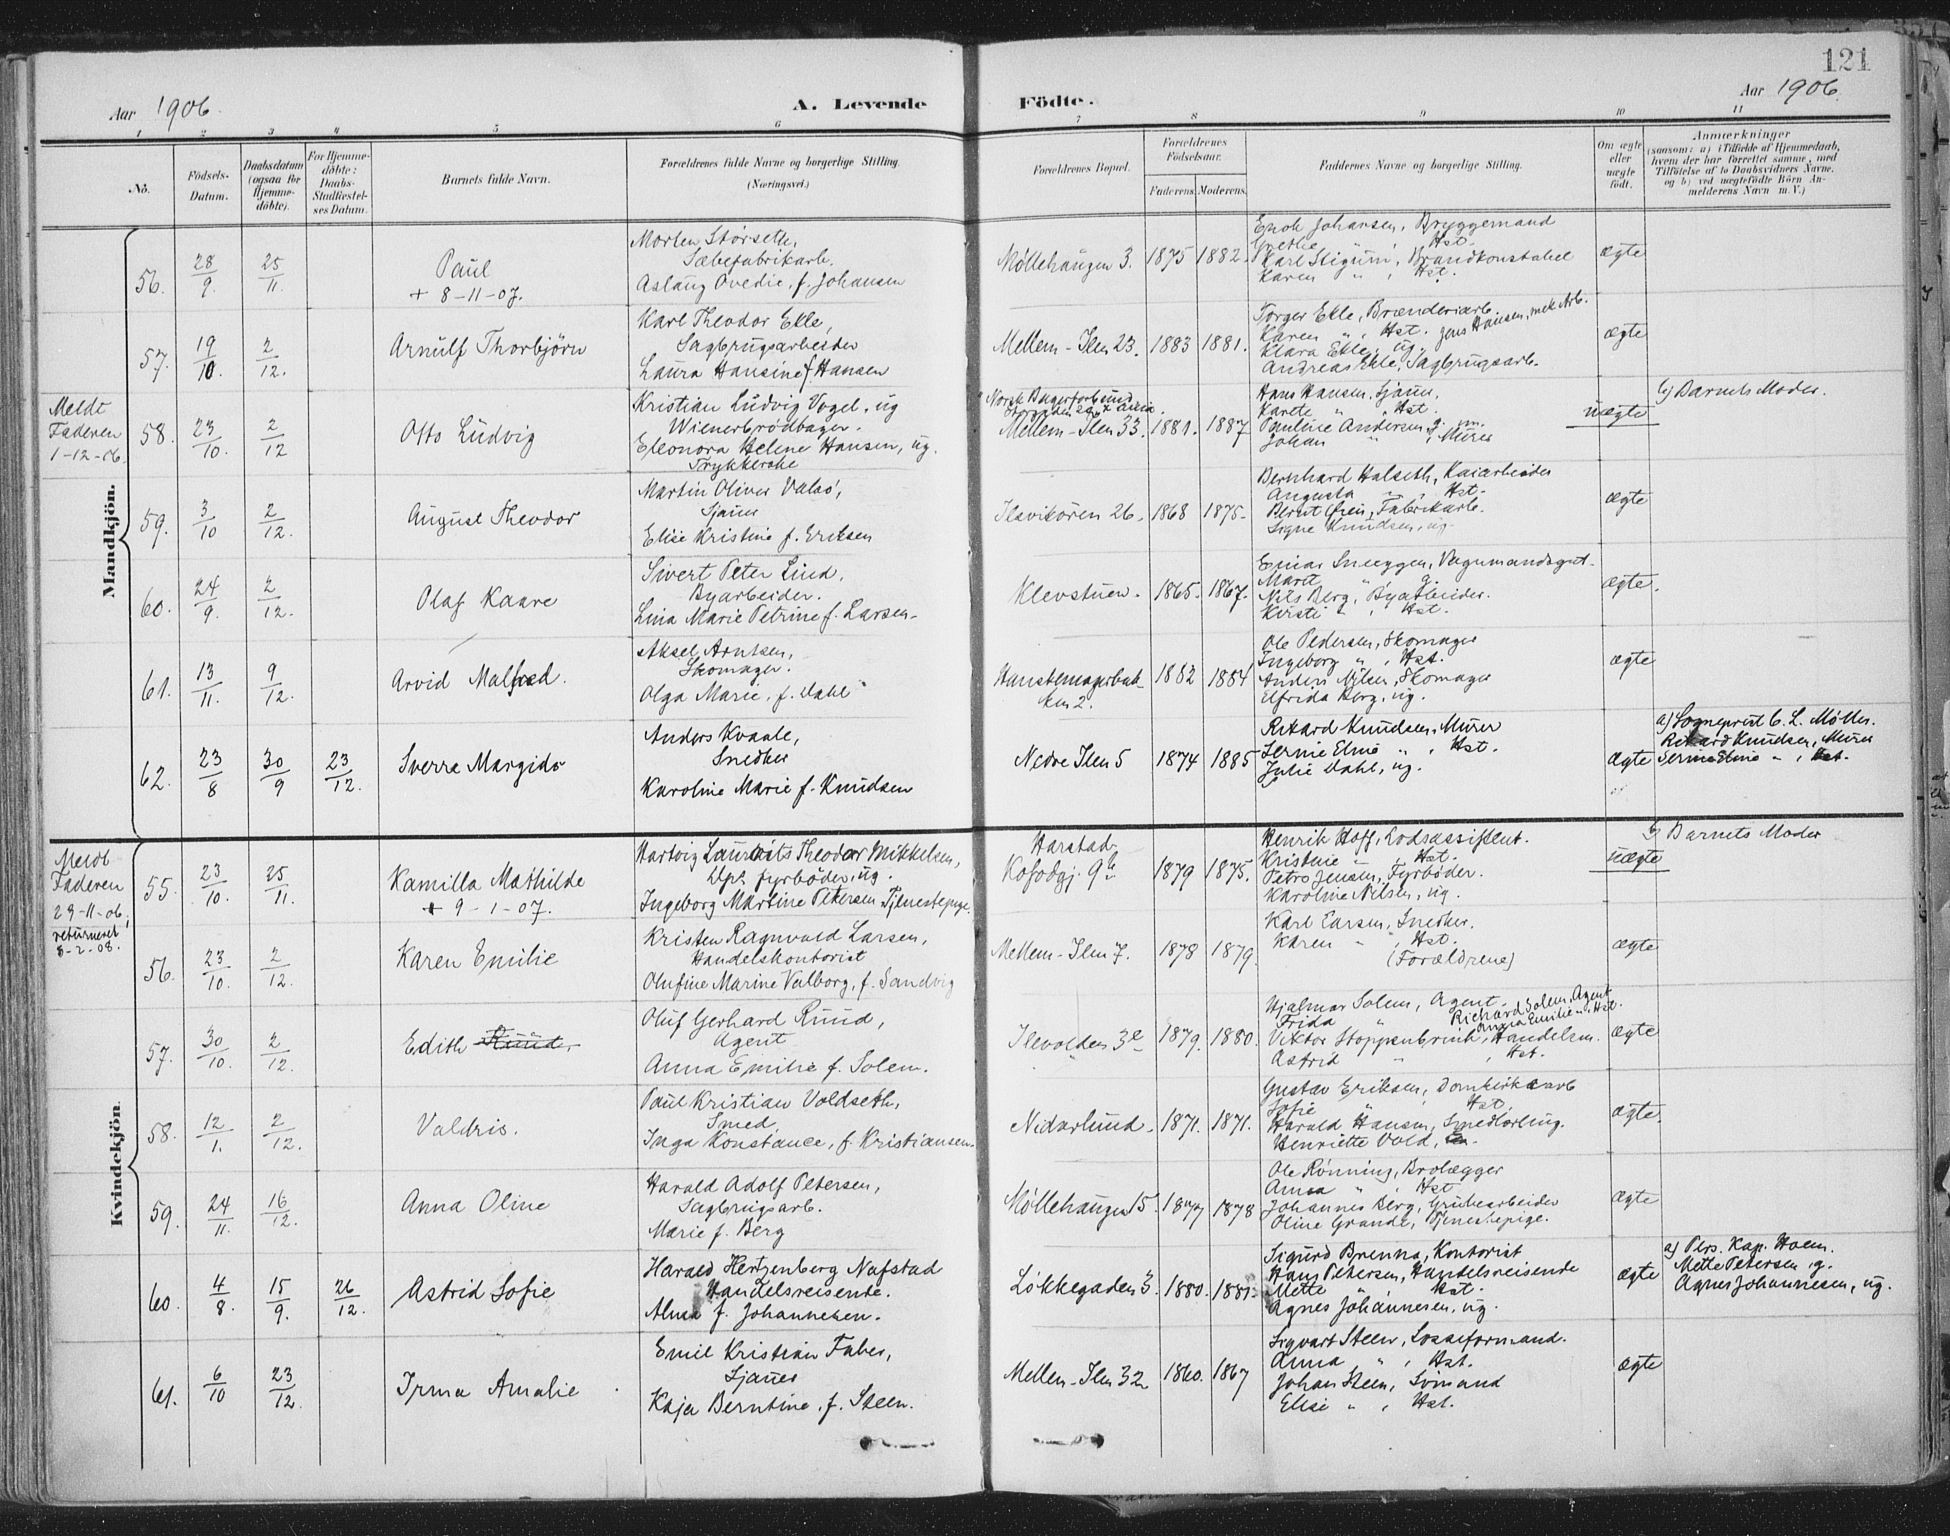 121
Aar 1906. A. Levende Födte. Aar 1906
1 2 3 4 5 6 7 8 9 10 11
No.
Födsels-Datum.
Daabsdatum (ogsaa for Hjemmedöbte).
For Hjemmedöbte: Daabs-Stadfæstelses Datum.
Barnets fulde Navn.
Forældrenes fulde Navne og borgerlige Stilling. (Næringsvei.)
Forældrenes Bopæl.
Forældrenes Födselsaar.
Faderens. Moderens.
Faddernes Navne og borgerlige Stilling.
Om ægte eller uægte födt.
Anmærkninger (saasom: a) i Tilfælde af Hjemmedaab, hvem der har forrettet samme, med Tilföielse af to Daabsvidners Navne, og b) ved uægtefödte Börn Anmelderens Navn m. V.)
Mandkjön.
56. 28/9. 25/11. Paul
+ 8-11-07.
Morten Størseth,
Sæbefabrikarb.
Aslaug Ovedie, f. Johansen
Møllehaugen 3. 1875 1882.
Enok Johansen, Bryggemand
Grethe " , Hst.
Karl Stigum, Brandkonstabel
Karen " , Hst.
ægte
57. 19/10. 2/12. Arnulf Thorbjörn
Karl Theodor Ekle,
Sagbrugsarbeider
Laura Hansine f. Hansen
Mellem-Ilen 23. 1883 1881.
Torger Ekle, Brænderiarb.
Karen " , Hst. Jens Hansen, mek Arb.
Klara Ekle, ug.
Andreas Ekle, Sagbrugsarb.
ægte
Meldt
Faderen
1-12-06.
58. 23/10. 2/12 Otto Ludvig
Kristian Ludvig Vogel, ug
Wienerbrødbager.
Eleonora Helene Hansen, ug.
Norsk Bagerforbund
Mellem-Ilen 33. 1881. 1887.
Hans Hansen, Sjauer,
Karete " , Hst.
Pauline Andersen g. m.
Johan " , Murer
uægte
b) Barnets Moder.
59. 3/10 2/12. August Theodor
Martin Oliver Valsö,
Sjauer
Elise Kristine f. Eriksen
Ilsvikören 26. 1868 1875.
Bernhard Halseth, Kaiarbeider
Augusta " , Hst.
Bernt Øien, Fabrikarb.
Signe Knudsen, ug.
ægte
60. 24/9. 2/12. Olaf Kaare
Sivert Peter Lind,
Byarbeider.
Lina Marie Petrine f. Larsen
Klevstuen. 1865. 1867.
Einar Sneeggen, Vognmandsgut.
Marit " g.
Nils Berg, Byarbeider.
Kirsti " , Hst.
ægte.
61. 13/11. 9/12. Arvid Malfred.
Aksel Arntsen,
Skomager.
Olga Marie, f. Dahl
ken 2. 1882 1884
Ole Pedersen, Skomager
Ingeborg " , Hst.
Anders Nilsen, Skomager
Elfrida Berg, ug.
ægte
62. 23/8 30/9 23/12. Sverre Margido
Anders Kvaale,
Snedker
Karoline Marie f. Knudsen
Nedre Ilen 5 1874 1885
Rikard Knudsen, Murer
Jernie Elmo " , Hst.
Julie Dahl, ug.
ægte
a) Sogneprest C. L. Møller.
Rikard Knudsen, Murer
" , Hst.
Kvindekjön.
Meldt
Faderen
29-11-06,
returneret
8-2-08.
55. 23/10. 25/11. Kamilla Mathilde
+ 9-1-07.
Hartvig Laurits Theodor Mikkelsen,
Dps. fyrböder, ug.
Ingeborg Martine Petersen Tjenestepige.
Harstad,
Kofodgj. 9b 1879 1875.
Henrik Hoff, Lodsassistent.
Kristine " , Hst.
Petro Jensen, Fyrböder.
Karoline Nilsen, ug.
uægte
b) Barnets Moder
56. 23/10. 2/12. Karen Emilie
Kristen Ragnvald Larsen,
Handelskontorist
Olufine Marine Valborg, f. Sandvig
Mellem-Ilen 7. 1878 1879.
Karl Larsen, Snedker.
Karen " , Hst.
(Forældrene)
ægte
57. 30/10. 2/12. Edith Ruud.
Oluf Gerhard Ruud,
Agent
Anna Emilie f. Solem.
Ilevolden 3e 1879. 1880.
Hjalmar Solem, Agent.
Frida " Richard Solem, Agent
Anna Emilie " , Hst.
Viktor Stoppenbrink, Handelsm.
Astrid " , Hst.
ægte
58. 12/1. 2/12. Valdris.
Paul Kristian Voldseth,
Smed,
Inga Konstance, f. Kristiansen
Nidarlund. 1871. 1871.
Gustav Eriksen, Domkirkearb
Sofie " Hst
Harald Hansen, Smedlærling.
Henriette Vold,
ægte.
59. 24/11. 16/12. Anna Oline
Harald Adolf Petersen,
Sagbrugsarb.
Marie f. Berg
Møllehaugen 15. 1877 1878
Ole Rönning, Brolægger
Anna " , Hst
Johannes Berg, Grubearbeider
Oline Grande, Tjenestepige.
ægte
60. 4/8. 15/9. 26/12. Astrid Sofie
Harald Hertzenberg Nafstad
Handelsreisende.
Alma f. Johannesen.
Løkkegaden 3. 1880. 1881.
Sigurd Brenna, Kontorist
Hans Petersen, Handelsreisende
Mette " Hst.
Agnes Johannesen, ug.
ægte
a) Pers. Kap. Hoem.
Mette Petersen g.
Agnes Johannesen, ug.
61. 6/10 23/12. Irma Amalie
Emil Kristian Faber,
Sjauer
Kaja Berntine, f. Steen.
Mellem-Ilen 32 1860. 1867
Sigvart Steen, Losseformand.
Anna " , Hst.
Johan Steen, Sömand
Elise " , Hst.
ægte